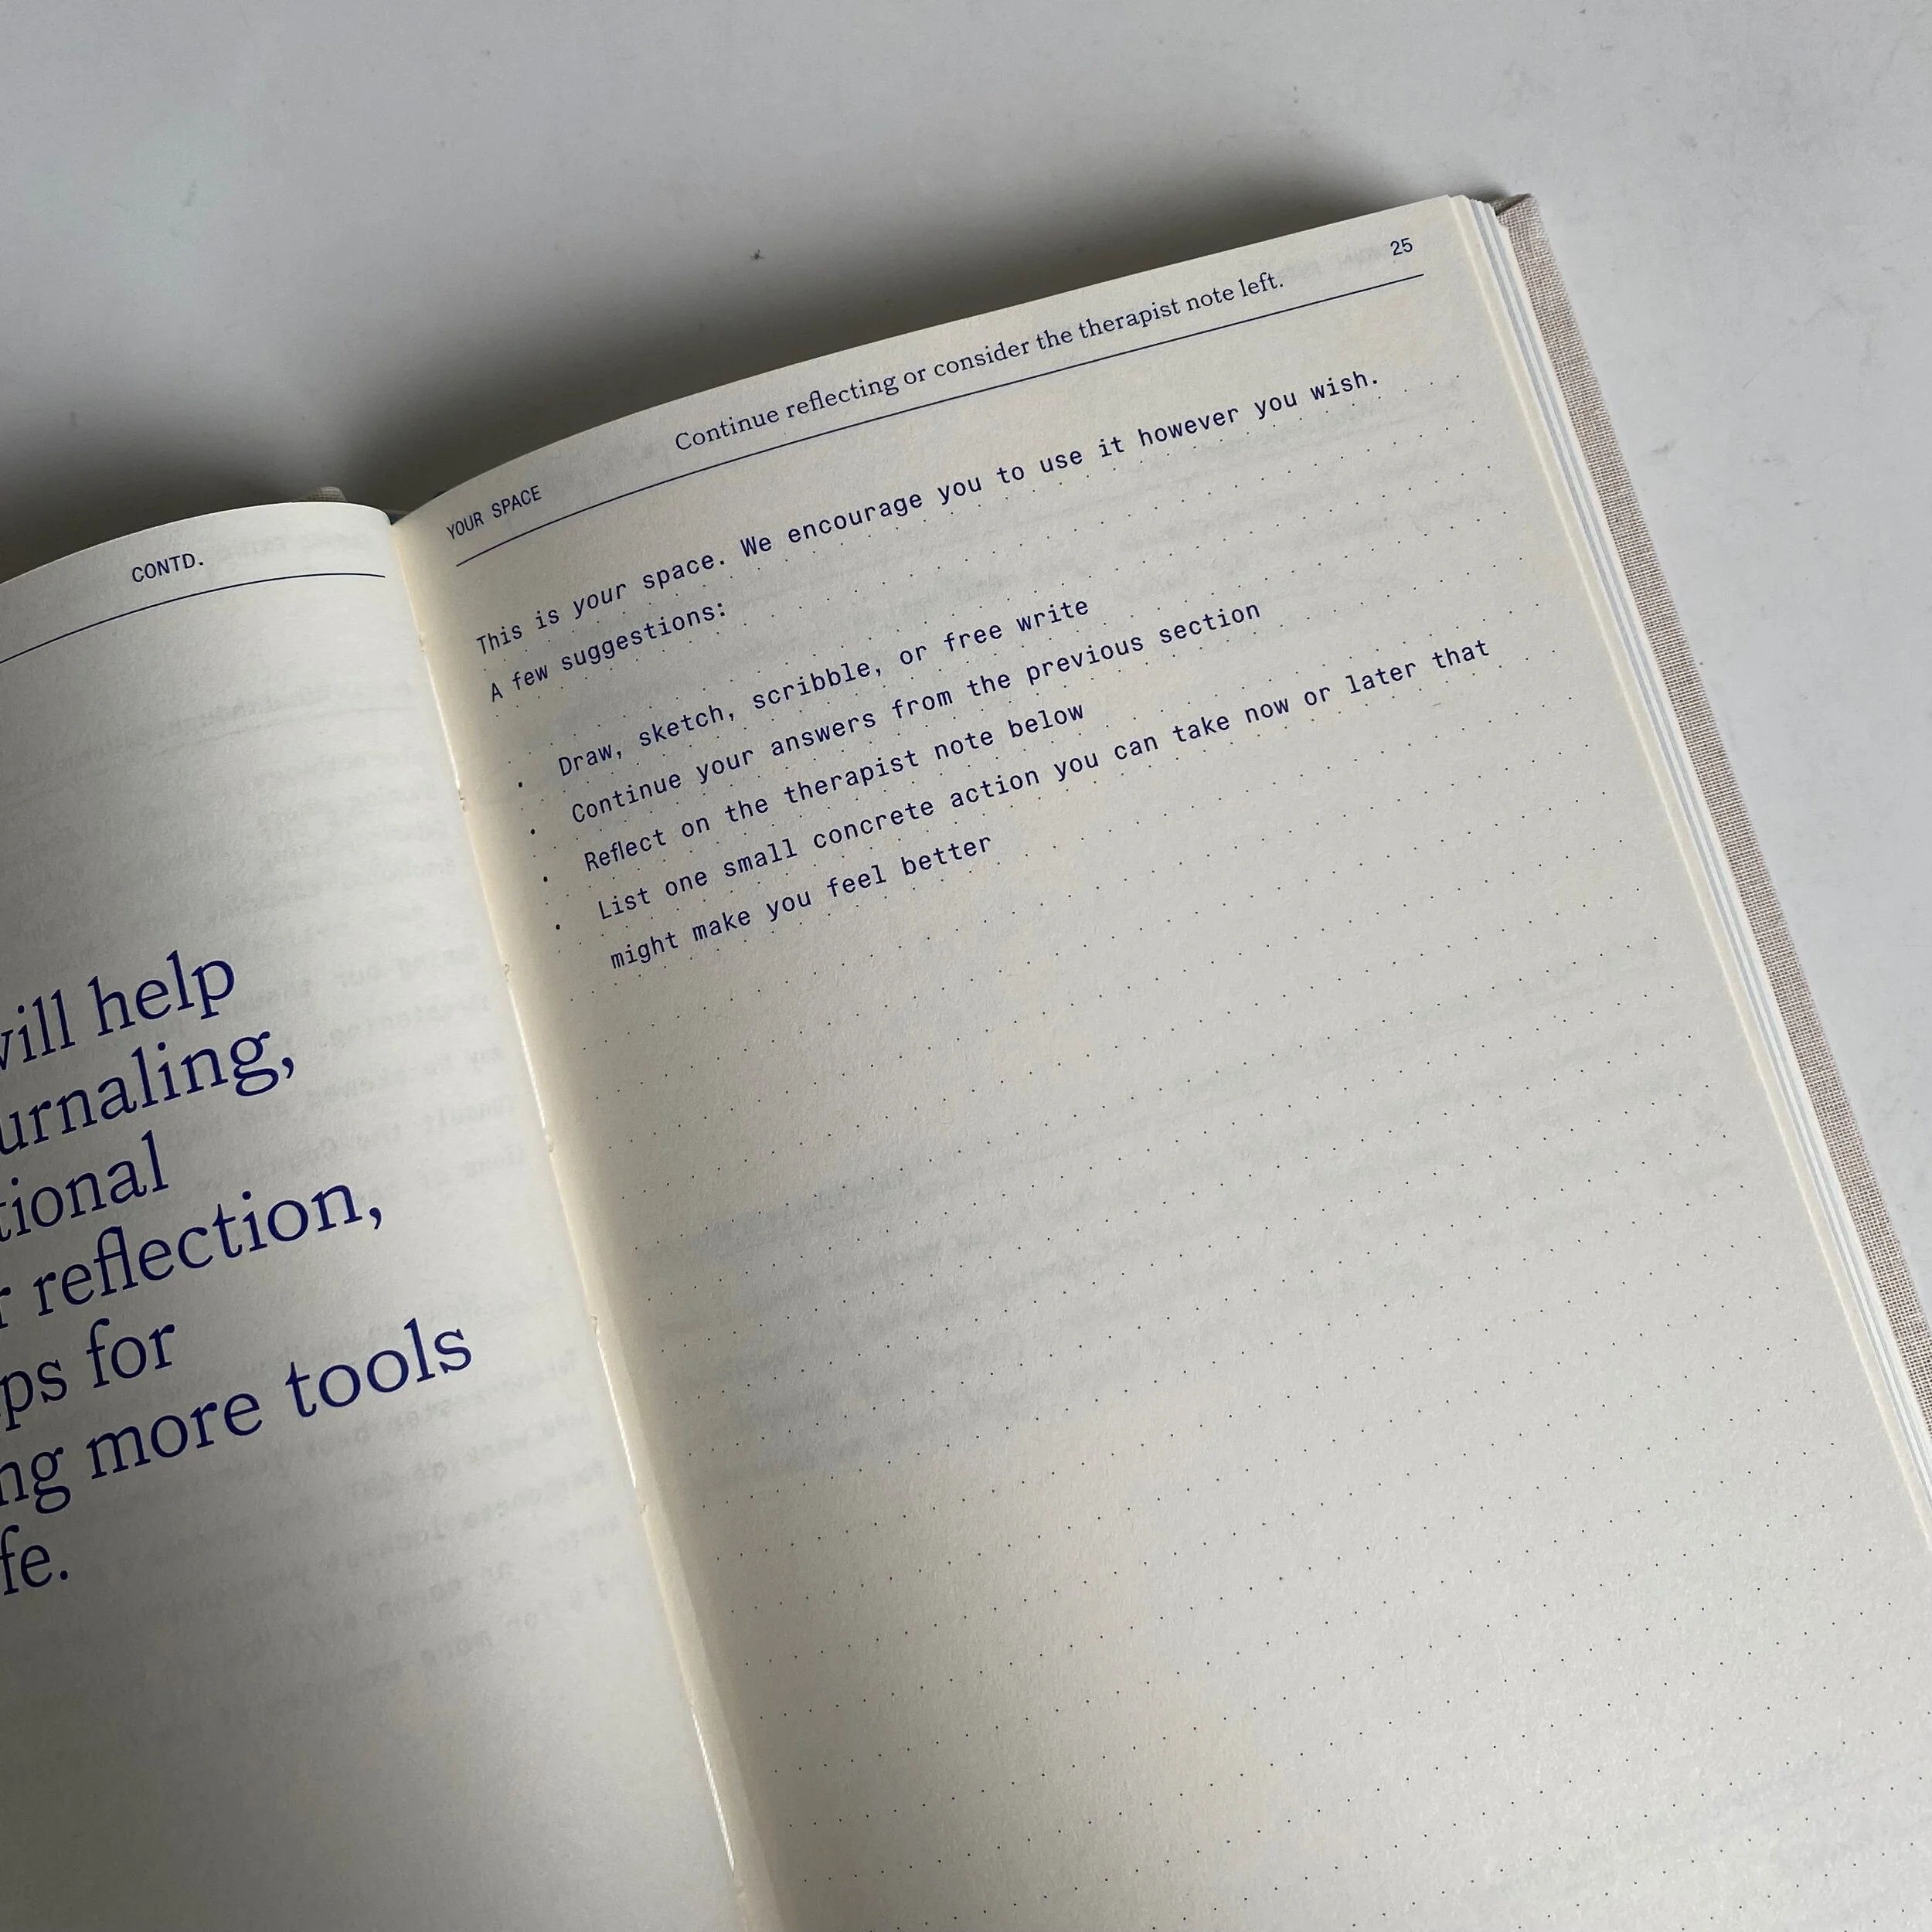 CONTD.
will help
tional
reflection,
for
more tools
YOUR SPACE
Continue reflecting or consider the therapist note left.
25
This is your space. We encourage you to use it however you wish.
A few suggestions:
• Draw, sketch, scribble, or free write
• Continue your answers from the previous section
• Reflect on the therapist note below
• List one small concrete action you can take now or later that
might make you feel better